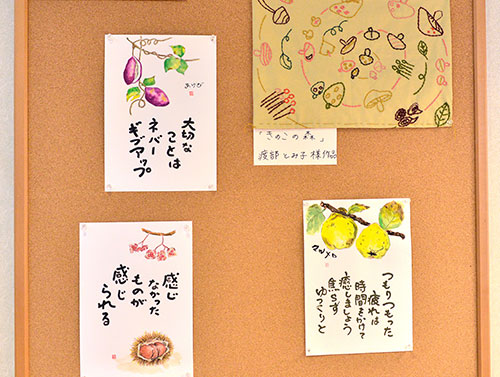 あけび
大切な
ことは
ネバー
ギブアップ
「きのこの森」
渡部とみ子様作品
感じ
なかった
ものが
感じ
られる
つもりつもった
疲れは
時間をかけて
癒しましょう
焦らず
ゆっくりと